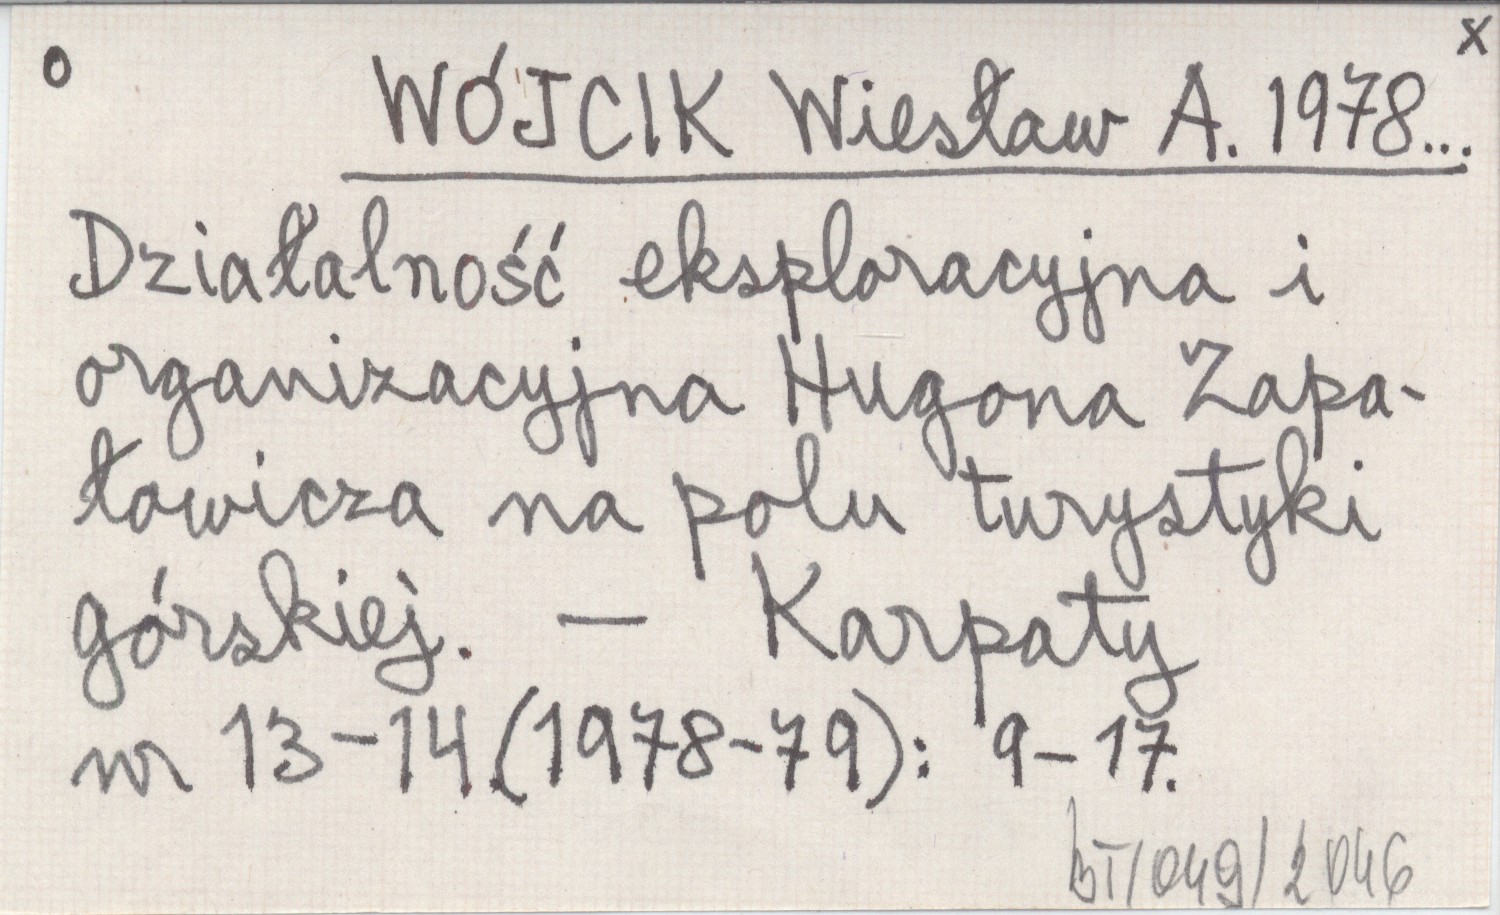 o x
WÓJCIK Wiesław A. 1978...
Działalność eksploracyjna i
organizacyjna Hugona Zapa-
łowicza na polu turystyki
górskiej. — Karpaty
nr 13-14 (1978-79): 9-17.
BT/049/2046